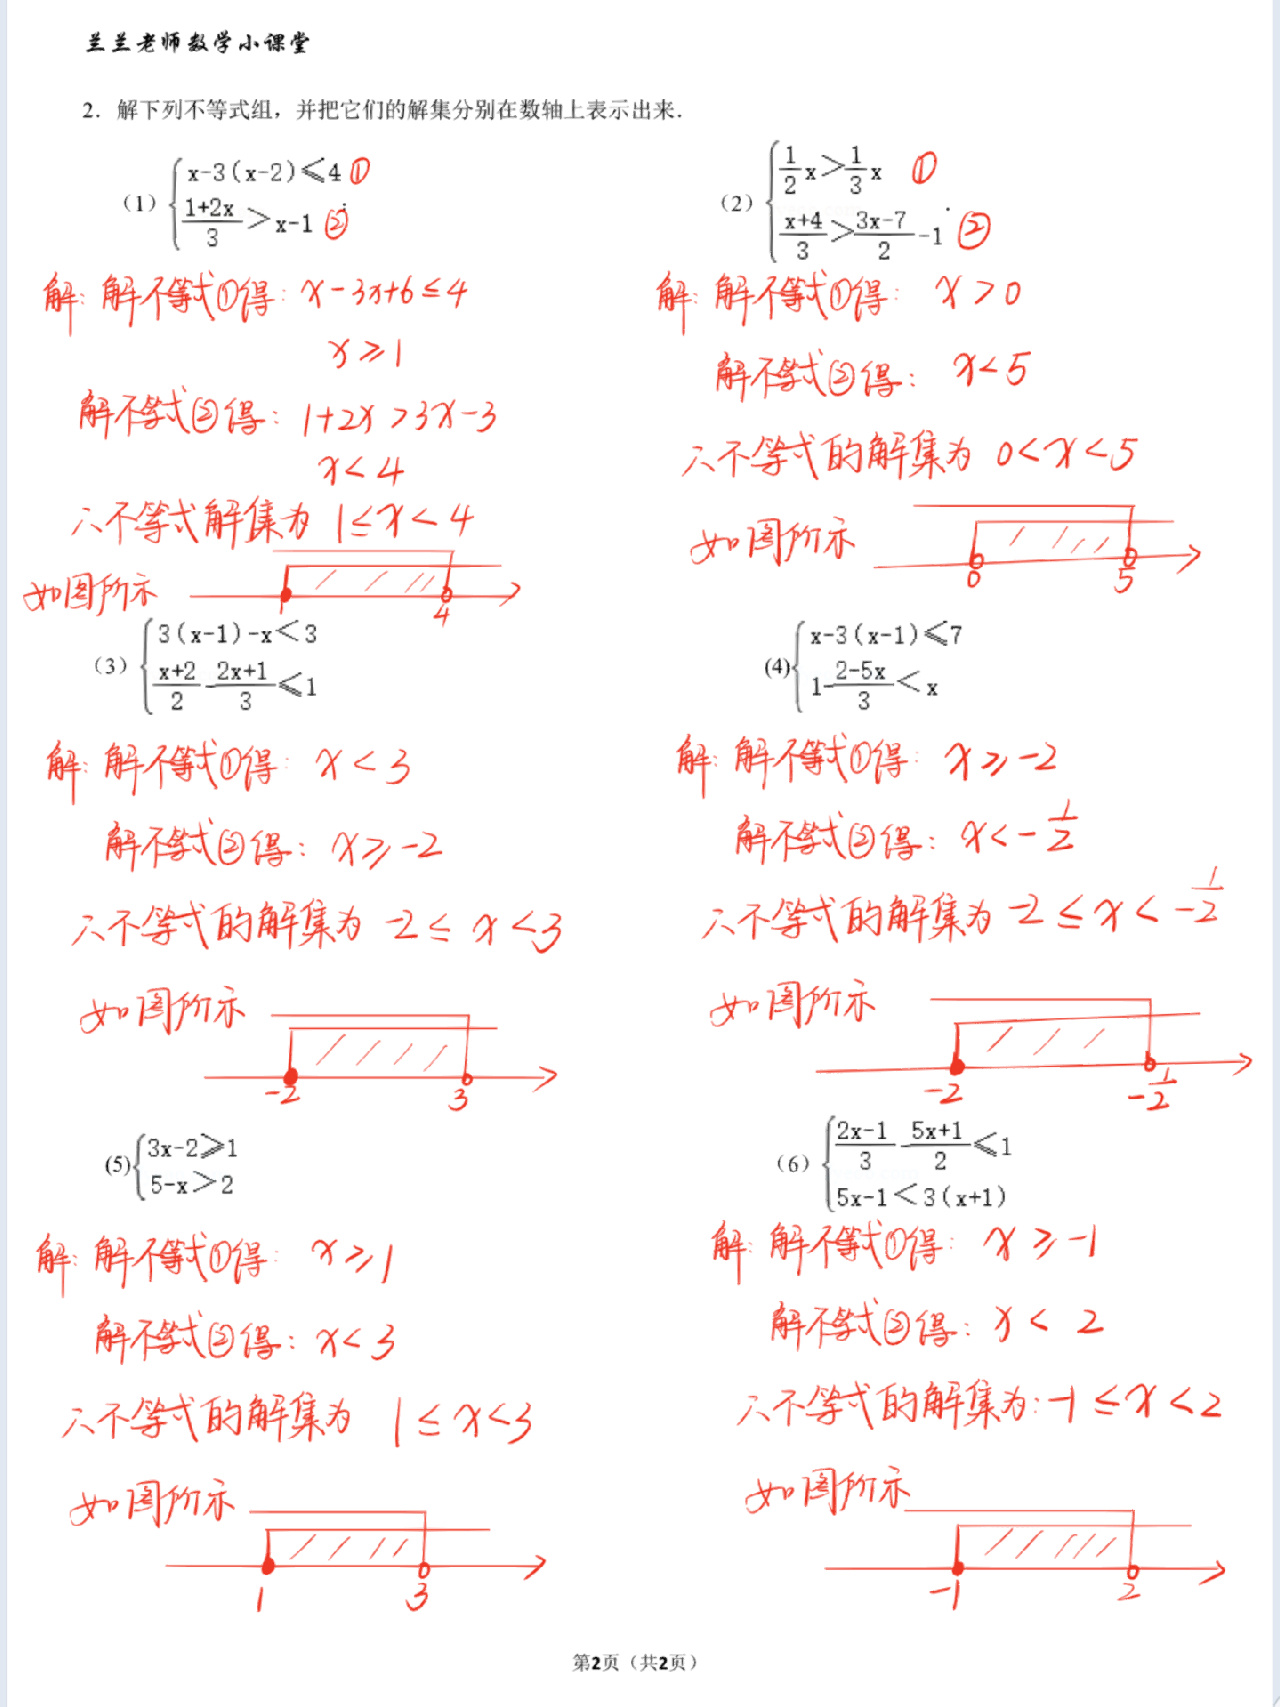 兰兰老师数学小课堂
2. 解下列不等式组，并把它们的解集分别在数轴上表示出来.
(1) { x-3(x-2)≤4 ①
(1+2x)/3 > x-1 ② ;
解: 解不等式①得: x-3x+6≤4
x≥1
解不等式②得: 1+2x>3x-3
x<4
∴不等式解集为 1≤x<4
如图所示
1 4
(2) { 1/2 x > 1/3 x ①
(x+4)/3 > (3x-7)/2 -1 ② .
解: 解不等式①得: x>0
解不等式②得: x<5
∴不等式的解集为 0<x<5
如图所示
0 5
(3) { 3(x-1)-x<3
(x+2)/2 - (2x+1)/3 ≤1
解: 解不等式①得: x<3
解不等式②得: x≥-2
∴不等式的解集为 -2≤x<3
如图所示
-2 3
(4) { x-3(x-1)≤7
1- (2-5x)/3 < x
解: 解不等式①得: x≥-2
解不等式②得: x<-1/2
∴不等式的解集为 -2≤x<-1/2
如图所示
-2 -1/2
(5) { 3x-2≥1
5-x>2
解: 解不等式①得: x≥1
解不等式②得: x<3
∴不等式的解集为 1≤x<3
如图所示
1 3
(6) { (2x-1)/3 - (5x+1)/2 ≤1
5x-1<3(x+1)
解: 解不等式①得: x≥-1
解不等式②得: x<2
∴不等式的解集为: -1≤x<2
如图所示
-1 2
第2页（共2页）